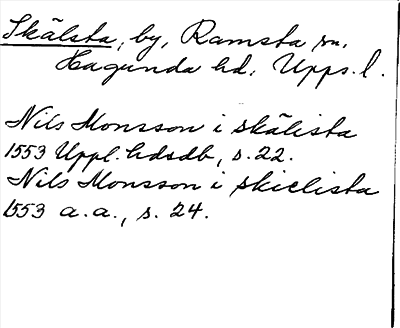 Skälsta, by, Ramsta sn.
Hagunda hd. Upps. l.
Nils Monsson i skälista
1553 Uppl. hdsdb, s. 22.
Nils Monsson i skielista
1553 a. a., s. 24.